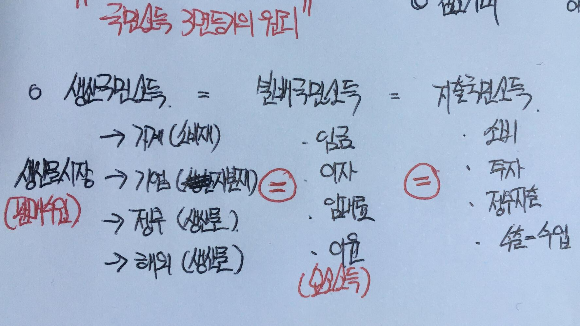 "국민소득 3면등가의 원리"
○ 생산국민소득 = 분배국민소득 = 지출국민소득
→ 가계 (소비재) · 임금 · 소비
생산물시장 → 기업 (자본재) = · 이자 = · 투자
(판매수입) → 정부 (생산물) · 임대료 · 정부지출
→ 해외 (생산물) · 이윤 · 수출-수입
(요소소득)